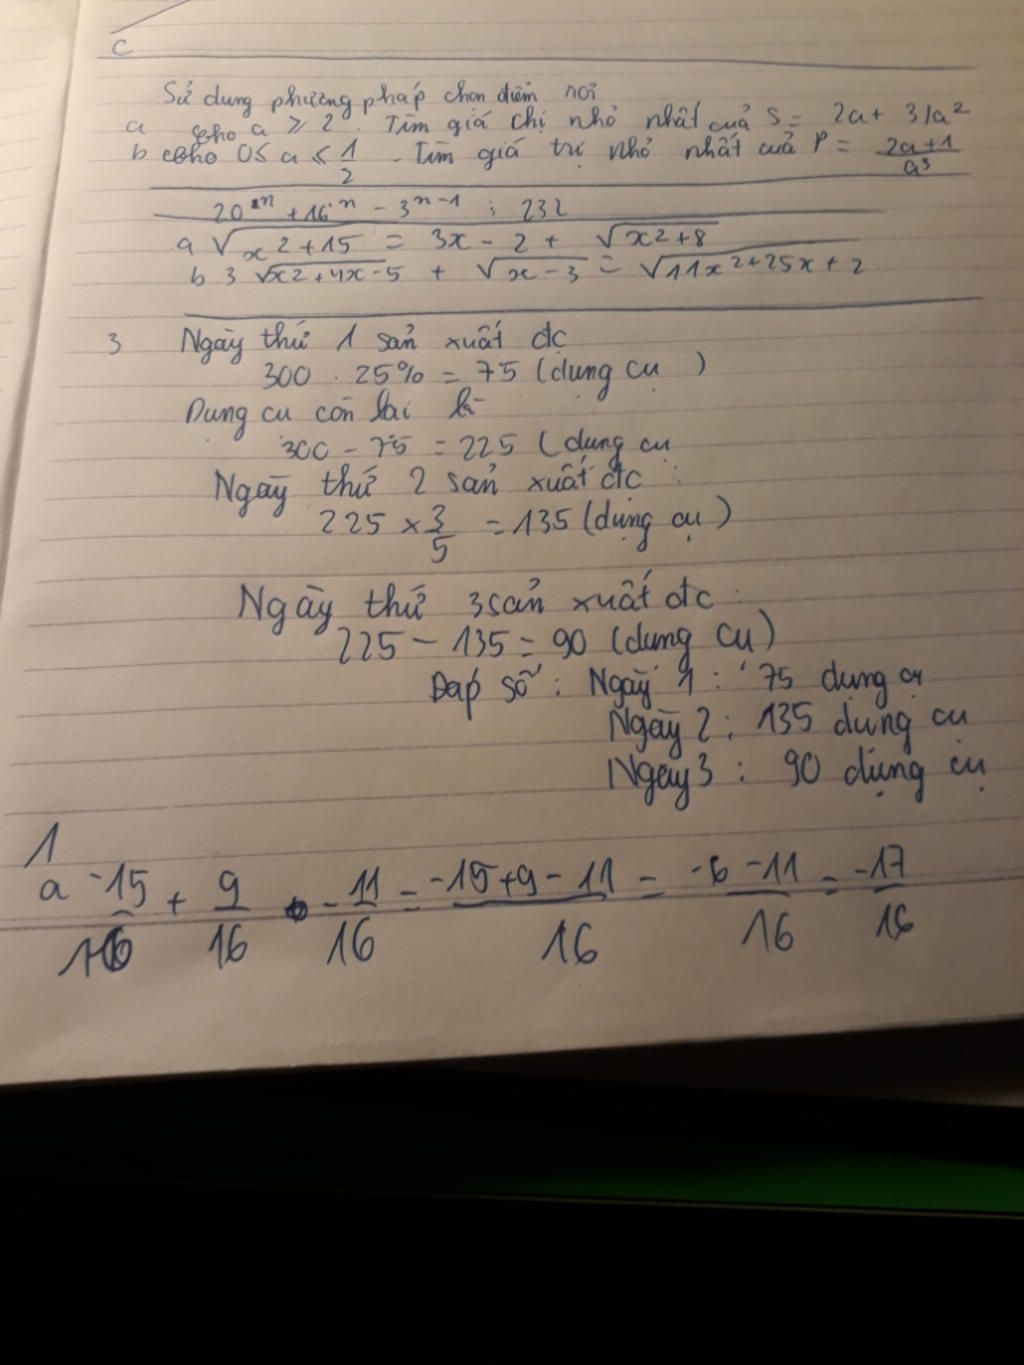 c
Sử dụng phương pháp chọn điểm rơi
a cho a ⩾ 2. Tìm giá chị nhỏ nhất của S = 2a + 3/a²
b cho 0 ≤ a ≤ 1/2 - Tìm giá trị nhỏ nhất của P = (2a+1)/a³
20ⁿ + 16ⁿ - 3ⁿ⁻¹ : 232
a √(x2+15) = 3x - 2 + √(x2+8)
b 3 √(x2+4x-5) + √(x-3) = √(11x²+25x+2)
3 Ngày thứ 1 sản xuất đc
300 . 25% = 75 (dụng cụ)
Dụng cụ còn lại là
300 - 75 = 225 (dụng cụ
Ngày thứ 2 sản xuất đc :
225 × 3/5 = 135 (dụng cụ)
Ngày thứ 3 sản xuất đc :
225 - 135 = 90 (dụng cụ)
Đáp số : Ngày 1 : 75 dụng cụ
Ngày 2 : 135 dụng cụ
Ngày 3 : 90 dụng cụ
1
a -15/16 + 9/16 - 11/16 = (-15+9-11)/16 = (-6-11)/16 = -17/16